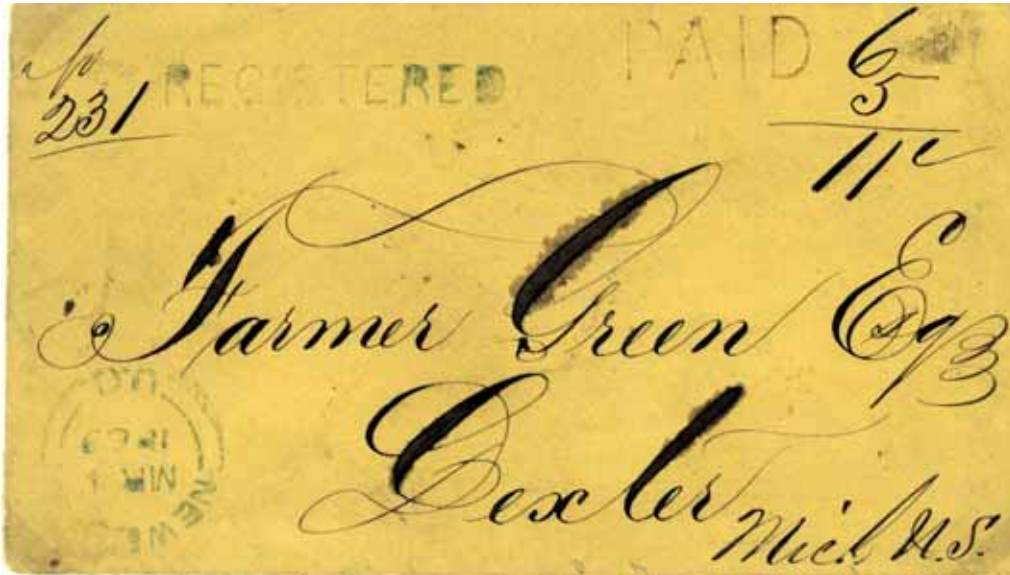 231
REGISTERED
PAID 6
5
11c
Farmer Green Esq
Dexter
Mich U.S.